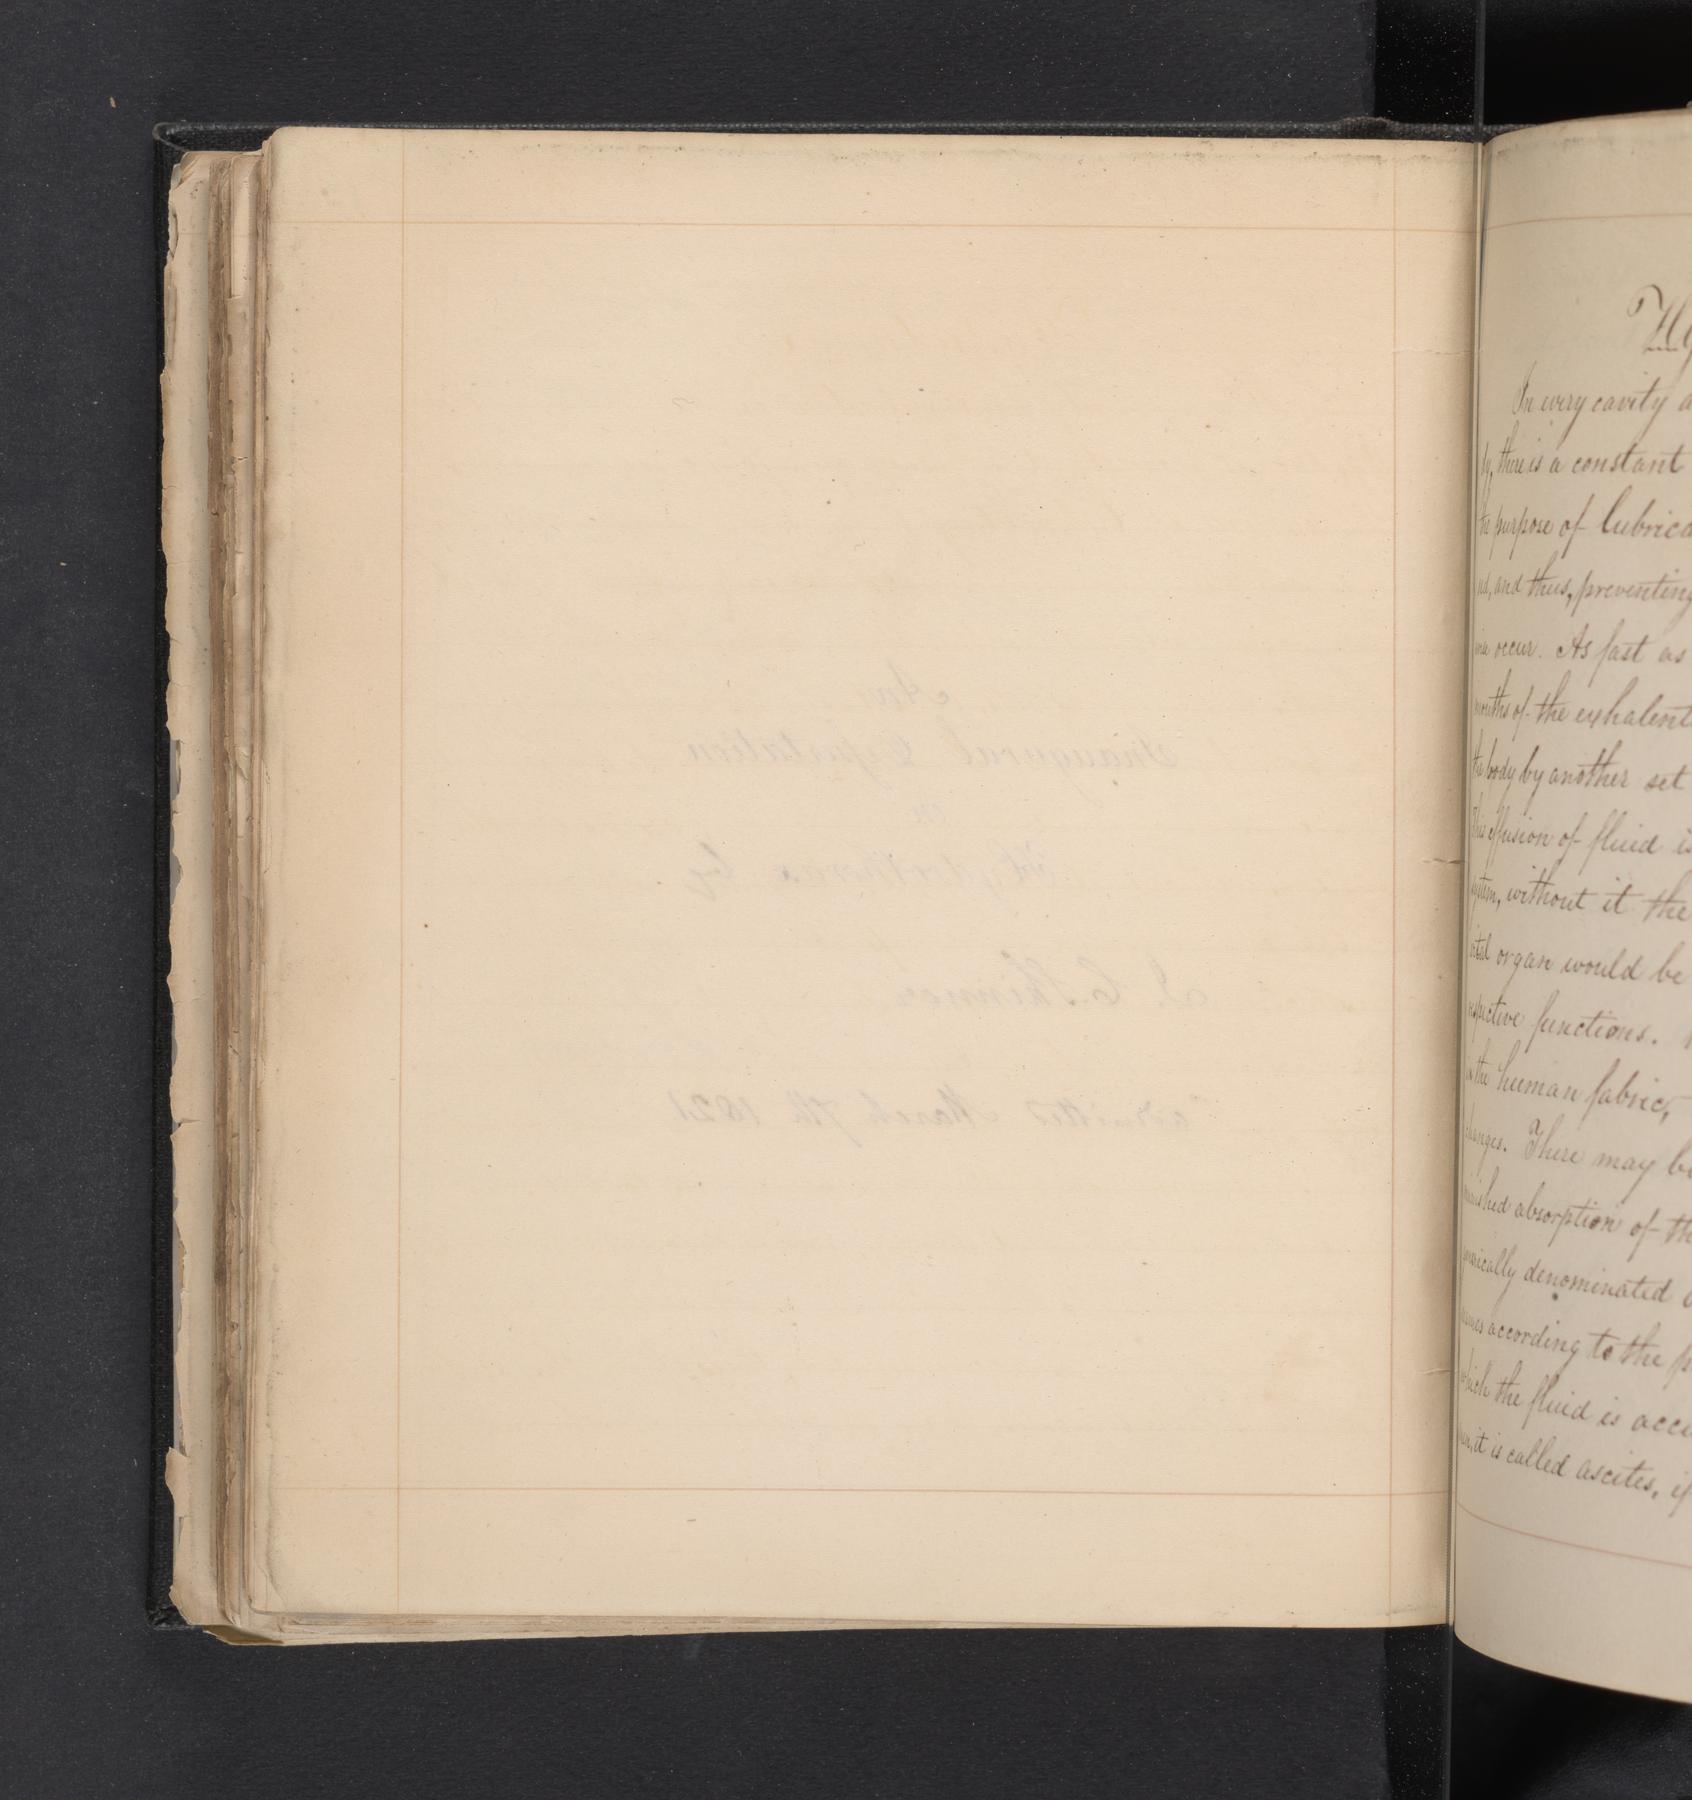 An
Inaugural Dissertation
on
Hydrothorax by
Skinner
admitted March 7th 1821
Hy
In every cavity
there is a constant
the purpose of lubrica
and thus, preventing
occur. As fast as
mouths of the exhalent
the body by another set
This effusion of fluid is
system, without it the
vital organ would be
respective functions.
in the human fabric,
changes. There may be
absorption of th
denominated
according to the p
which the fluid is accu
it is called ascites, if